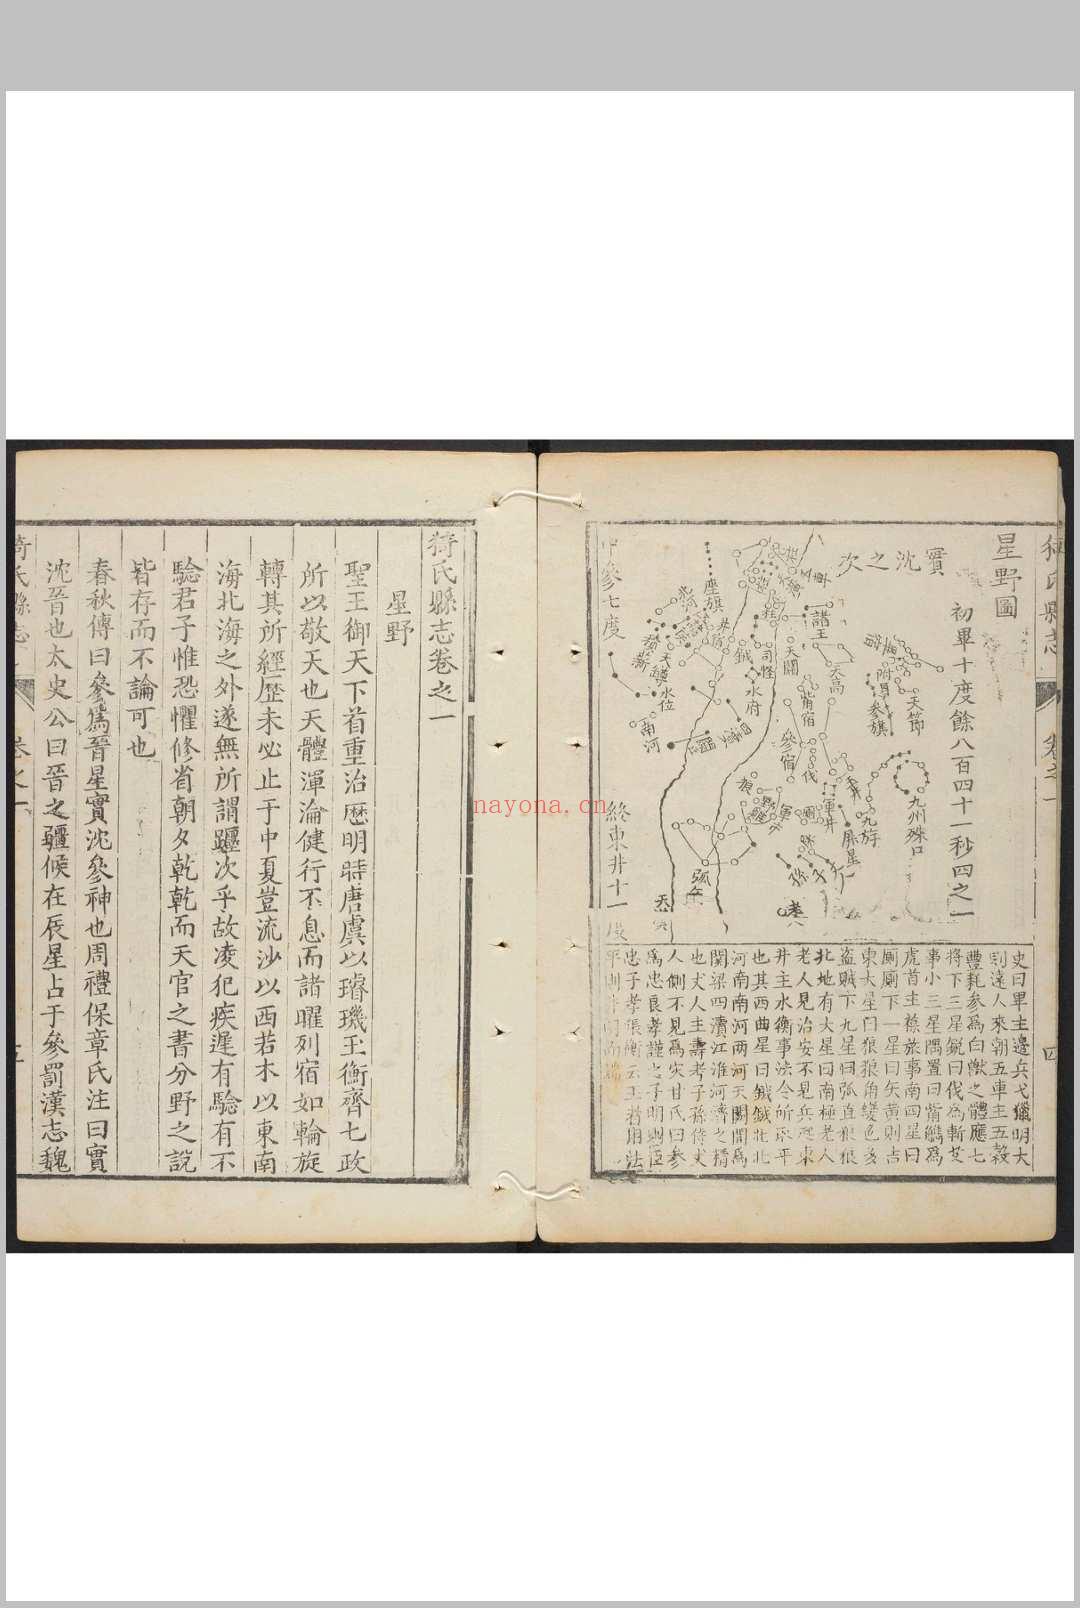 星野圖
實沈之次
初畢十度餘八百四十一秒四之一
中參七度
終東井十一度
座旗
諸王
天關
司怪
鉞
水府
水位
積薪
南河
天高
天節
附耳
參旗
觜宿
參宿
伐
軍井
屏星
九斿
九州殊口
狼
弧矢
史曰畢主邊兵弋獵明大
則遠人來朝五車主五穀
豐耗參爲白獸之體應七
將下三星銳曰伐爲斬艾
事小三星隅置曰觜觿爲
虎首主葆旅事南四星曰
厠厠下一星曰矢黃則吉
東大星曰狼狼角變色多
盜賊下九星曰弧直狼狼
北地有大星曰南極老人
老人見治安不見兵起東
井主水衡事法令所取平
也其西曲星曰鉞鉞北北
河南南河兩河天闕間爲
關梁四瀆江淮河濟之精
也丈人主壽考子孫侍丈
人側不見爲灾甘氏曰參
爲忠良孝謹之子明則臣
忠子孝張衡云王者用法
卷之一
四
猗氏縣志卷之一
星野
聖王御天下首重治曆明時唐虞以璿璣玉衡齊七政
所以敬天也天體渾淪健行不息而諸曜列宿如輪旋
轉其所經歷未必止于中夏豈流沙以西若木以東南
海北海之外遂無所謂躔次乎故凌犯疾遲有驗有不
驗君子惟恐懼修省朝夕乾乾而天官之書分野之說
皆存而不論可也
春秋傳曰參爲晉星實沈參神也周禮保章氏注曰實
沈晉也太史公曰晉之疆候在辰星占于參罰漢志魏
猗氏縣志
卷之一
nayona.cn